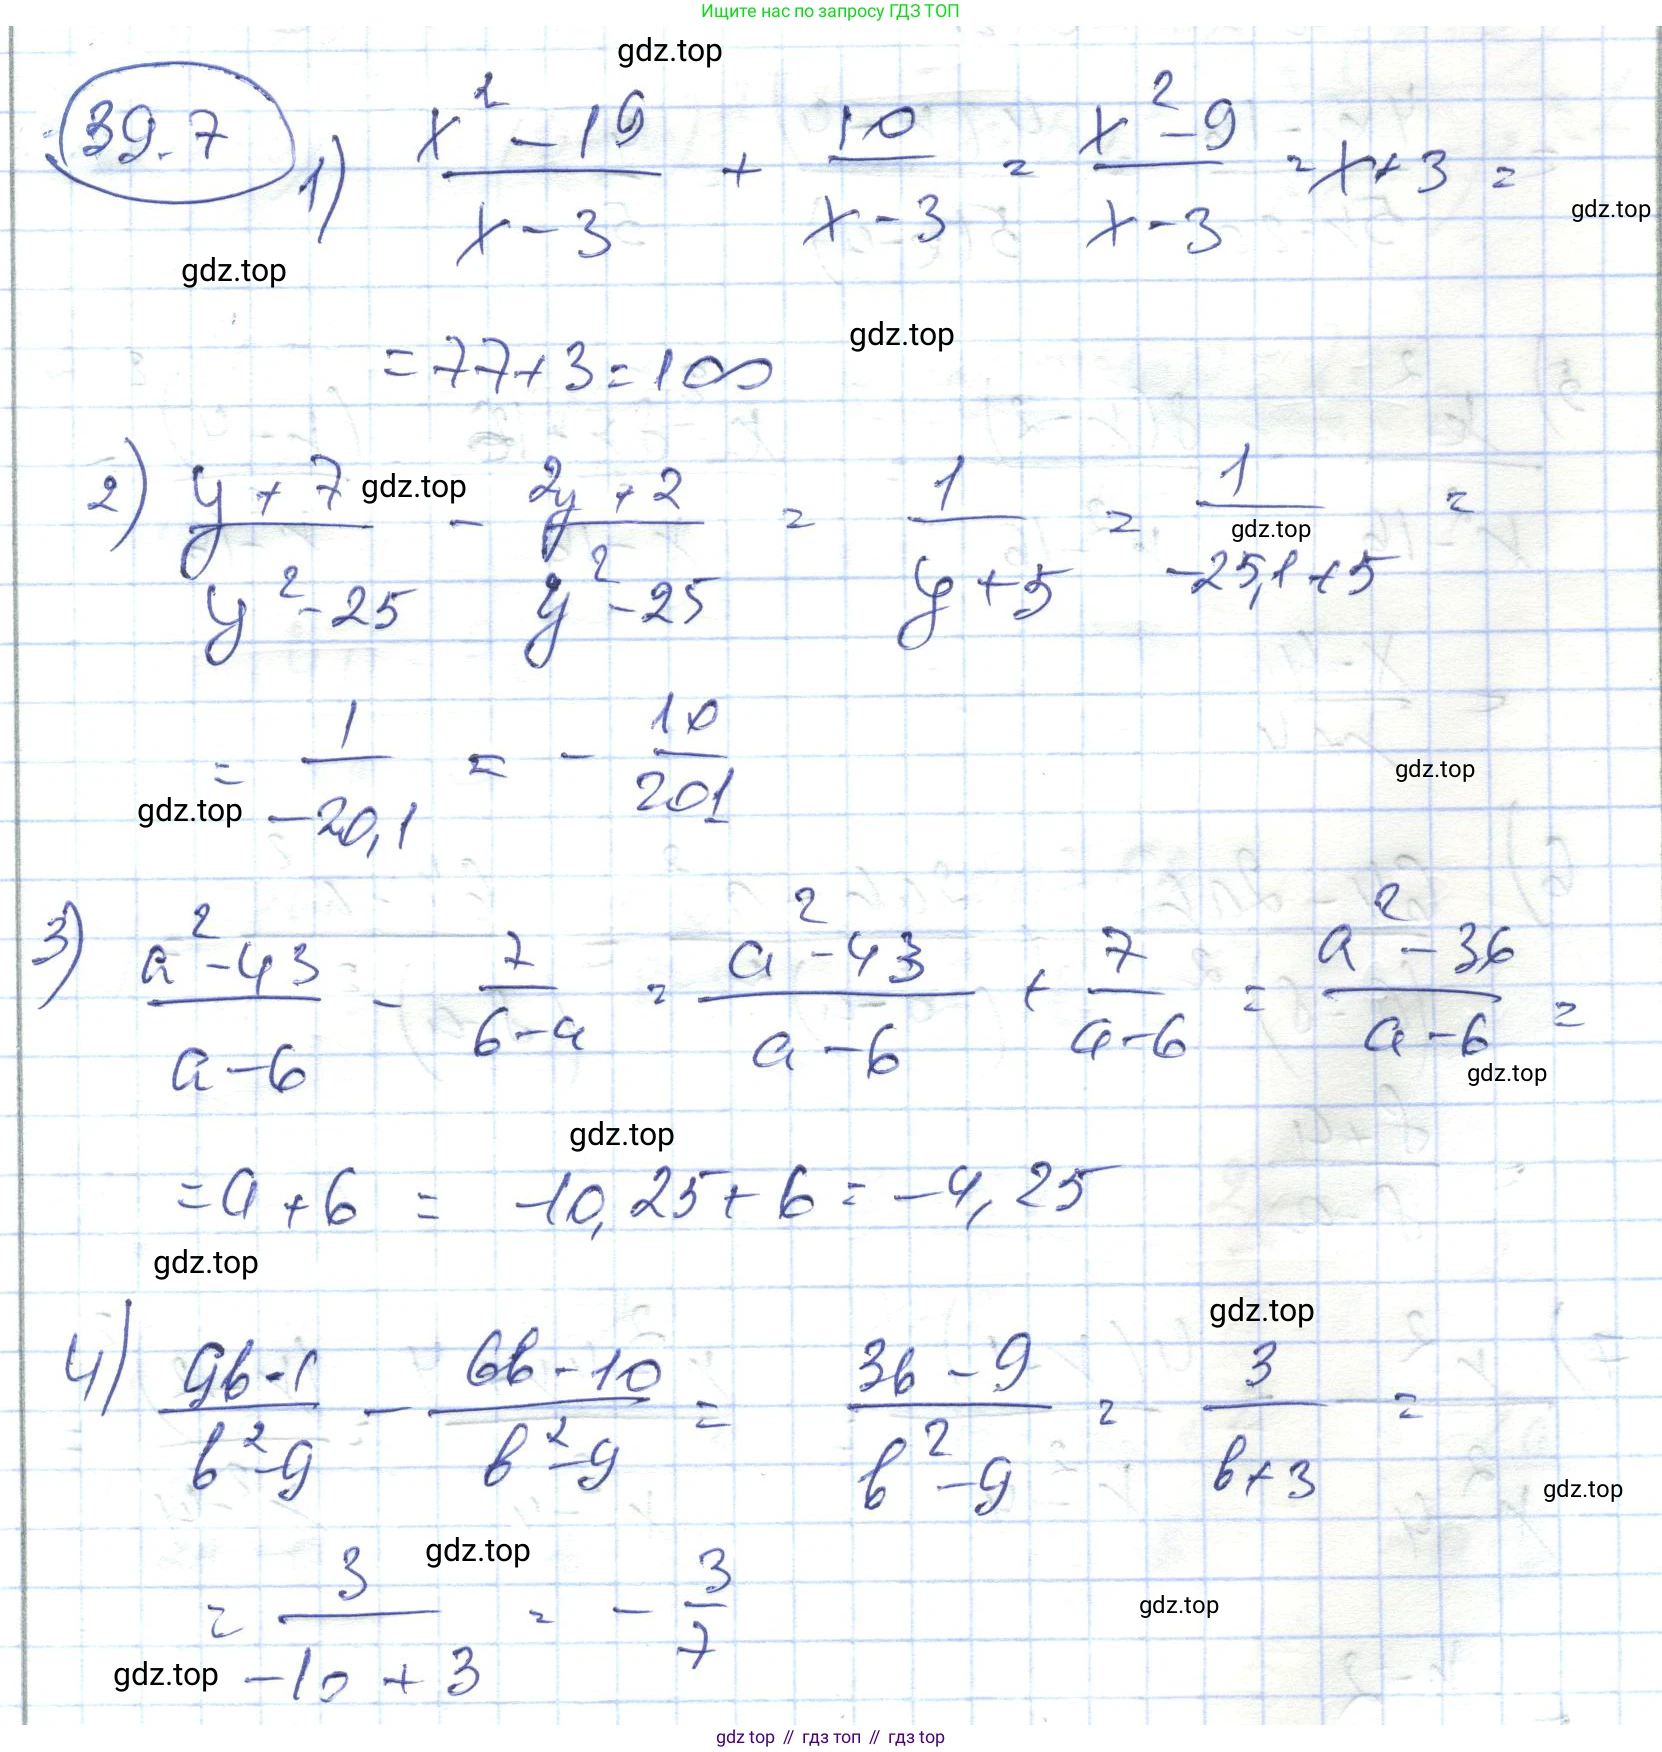 Ищите нас по запросу ГДЗ ТОП
gdz.top
39.7 1) (x² - 19)/(x - 3) + 10/(x - 3) = (x² - 9)/(x - 3) = x + 3 =
gdz.top
gdz.top
gdz.top
= 77 + 3 = 100
2) (y + 7)/(y² - 25) - (2y + 2)/(y² - 25) = 1/(y + 5) = 1/(-25,1 + 5) =
gdz.top
gdz.top
= 1/(-20,1) = - 10/201
gdz.top
gdz.top
3) (a² - 43)/(a - 6) - 7/(6 - a) = (a² - 43)/(a - 6) + 7/(a - 6) = (a² - 36)/(a - 6) =
gdz.top
gdz.top
= a + 6 = -10,25 + 6 = -4,25
gdz.top
gdz.top
4) (9b - 1)/(b² - 9) - (6b - 10)/(b² - 9) = (3b - 9)/(b² - 9) = 3/(b + 3) =
gdz.top
gdz.top
= 3/(-10 + 3) = - 3/7
gdz.top
gdz.top
gdz top // гдз топ // гдз top